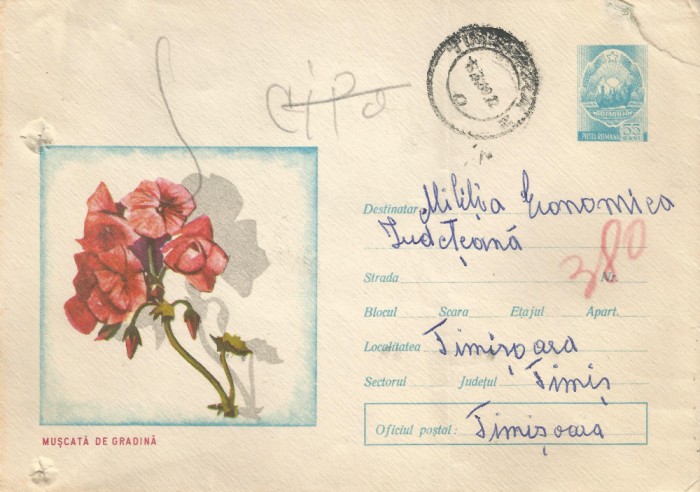 TIMIȘOARA
POSTA ROMANA 55 BANI
Destinatar Miliția Economica
Județeană
380
Strada Nr.
Blocul Scara Etajul Apart.
Localitatea Timișoara
Sectorul Județul Timiș
Oficiul poștal: Timișoara
MUȘCATĂ DE GRADINĂ